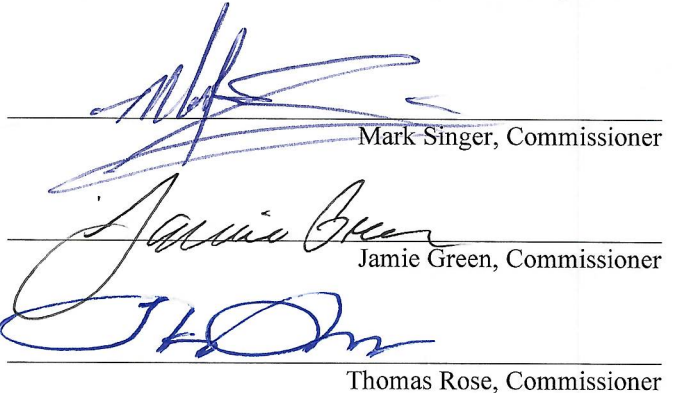 Mark Singer, Commissioner
Jamie Green
Jamie Green, Commissioner
Thomas Rose, Commissioner